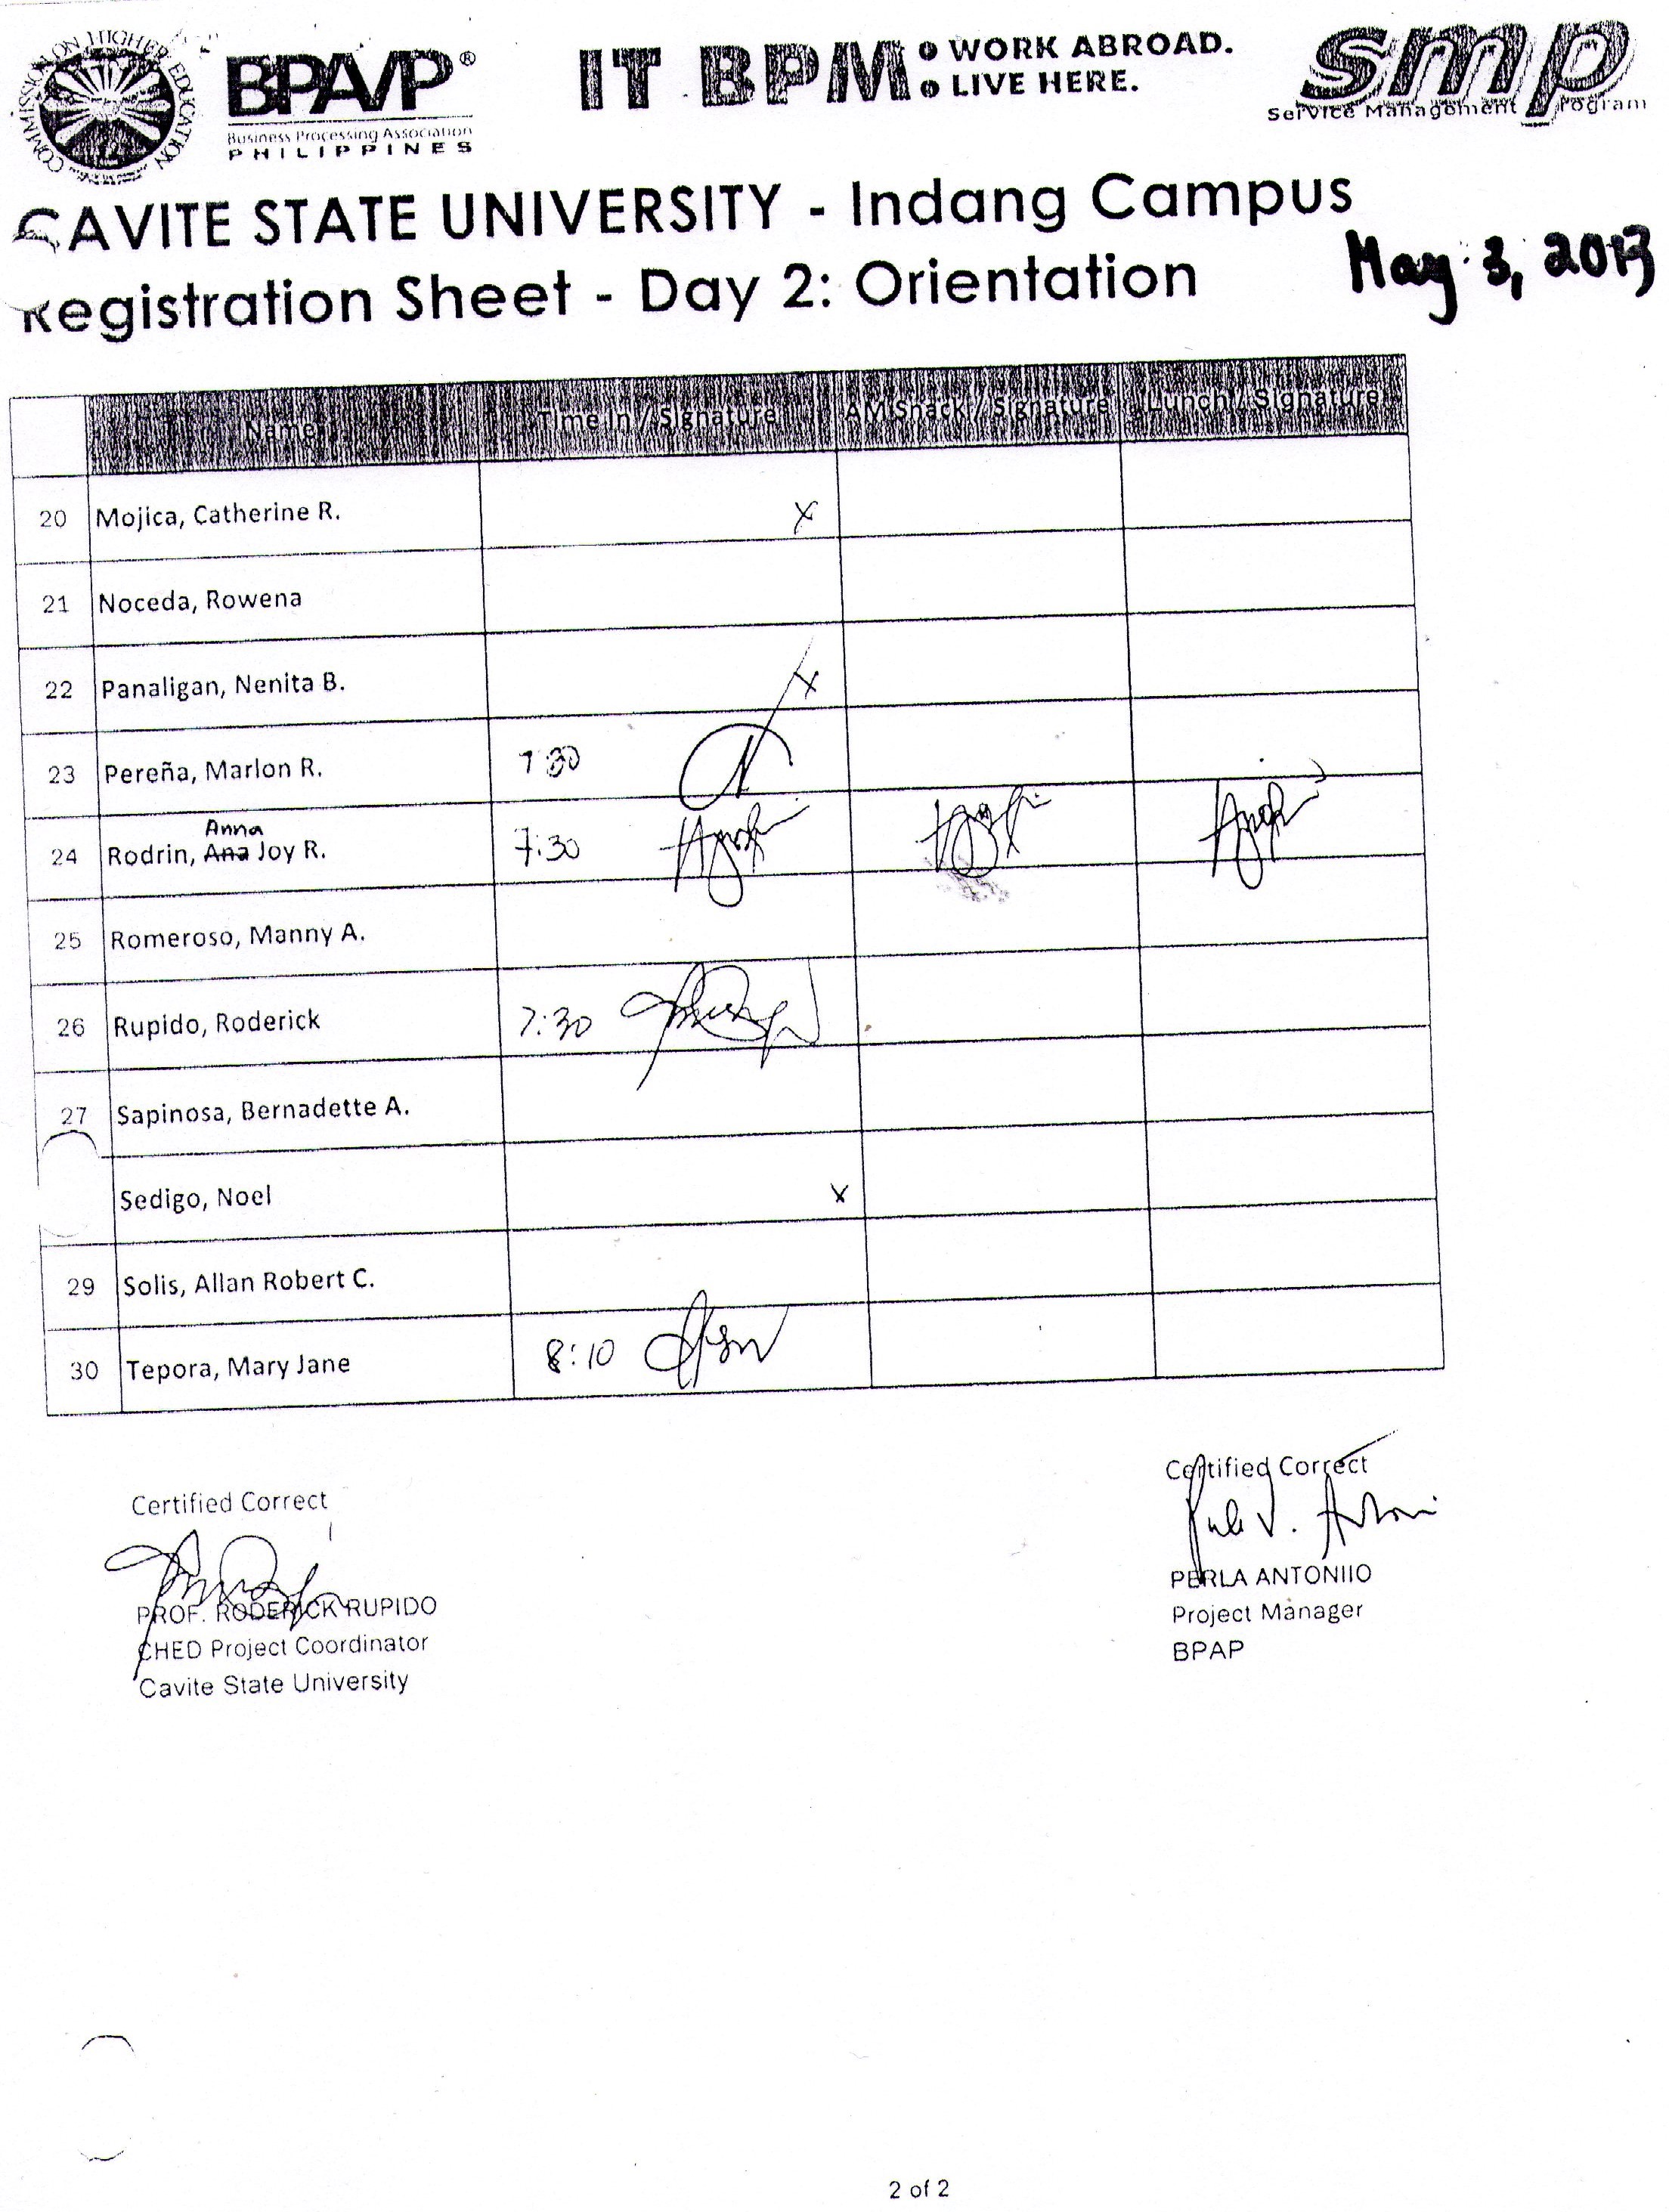 COMMISSION ON HIGHER EDUCATION
BPA/P®
Business Processing Association
PHILIPPINES
IT BPM
WORK ABROAD.
LIVE HERE.
smp
Service Management Program
CAVITE STATE UNIVERSITY - Indang Campus
Registration Sheet - Day 2: Orientation
May 3, 2013
Name Time In / Signature AM Snack / Signature Lunch / Signature
20 Mojica, Catherine R. x
21 Noceda, Rowena
22 Panaligan, Nenita B. x
23 Pereña, Marlon R. 7:30
Anna
24 Rodrin, Ana Joy R. 7:30
25 Romeroso, Manny A.
26 Rupido, Roderick 7:30
27 Sapinosa, Bernadette A.
Sedigo, Noel x
29 Solis, Allan Robert C.
30 Tepora, Mary Jane 8:10
Certified Correct
PROF. RODERICK RUPIDO
CHED Project Coordinator
Cavite State University
Certified Correct
PERLA ANTONIIO
Project Manager
BPAP
2 of 2